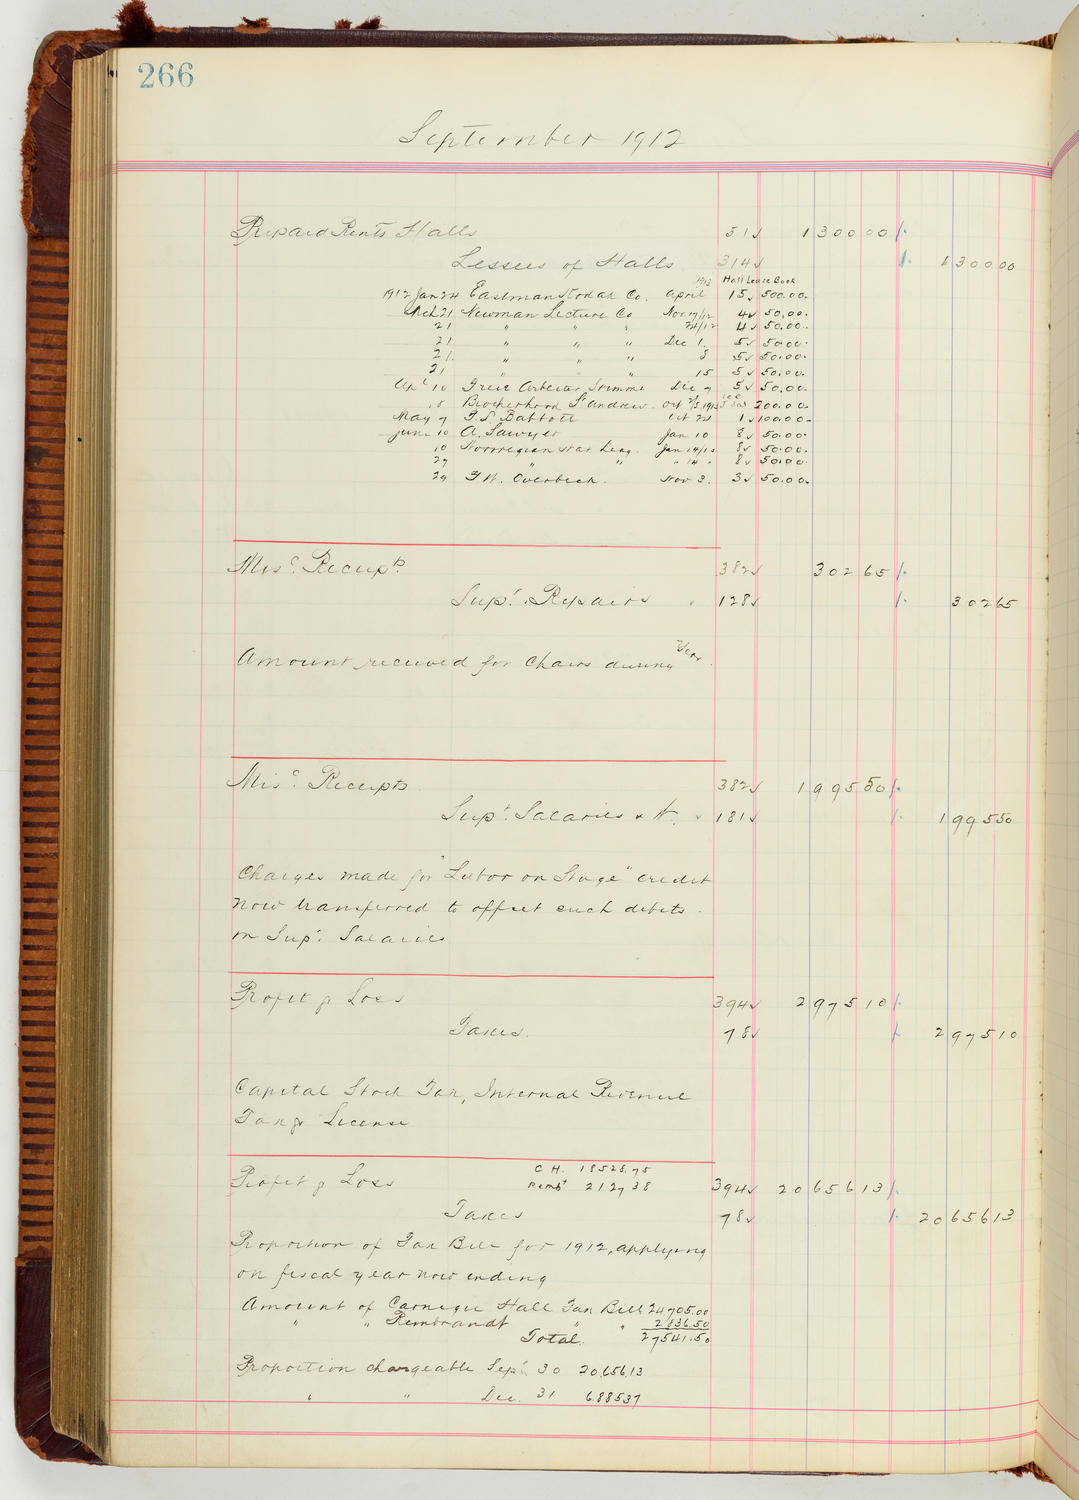 266
September 1912
Prepaid Rents Halls 51 1300 00
Lessees of Halls 314 1300 00
1913 Hall Lease Book
1912 Jan 24 Eastman Kodak Co. April 15 500.00.
Mch 21 Newman Lecture Co Nov. 17/12 4 50.00.
21 " " " 24/12 4 50.00.
21 " " " Dec 1. 5 50.00.
21. " " " 8 5 50.00.
21 " " " 15 5 50.00.
Apl 10 Freie Arbeiter Stimme Dec 7 5 50.00.
18 Brotherhood St. Andrew. Oct 2/5 1913 200.00.
May 7 F. S. Babbott Oct 24 1 100.00.
June 10 A. Sawyer Jan 10 8 50.00.
10 Norwegian Jan 14/13 8 50.00.
27 " " " 14 " 8 50.00.
29 F. W. Overbeck. Nov 3. 3 50.00.
Misc. Receipts. 382 302 65
Supt. Repairs 128 302 65
Amount received for Chairs during Year.
Misc. Receipts 382 1995 50
Supt. Salaries & W. 181 1995 50
Charges made for "Labor on Stage" credit
now transferred to offset such debits.
in Supt. Salaries
Profit & Loss 394 2975 10
Taxes. 78 2975 10
Capital Stock Tax, Internal Revenue
Tax & License
C H. 18528.75
Profit & Loss Rembt 2127 38 394 20656 13
Taxes 78 20656 13
Proportion of Tax Bill for 1912, applying
on fiscal year now ending
Amount of Carnegie Hall Tax Bill 24705.00
" " Rembrandt " " 2836.50
Total. 27541.50
Proportion chargeable Sept. 30 20,656.13
" " Dec. 31 6885 37